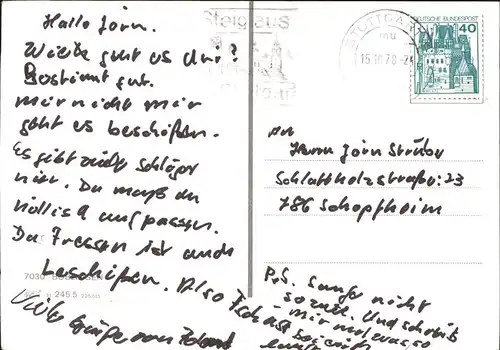 Hallo Jörn.
Wie geht es dir?
Bestimmt gut.
mir nicht mir
geht es beschißen.
Es gibt viele Schläger
hier. Du mußt
höllisch aufpassen.
Das Fressen ist auch
beschißen. Also Tschüst
Viele Grüße von
P.S. Sauge nicht
so viel. Und schreib
mir mal was so
7030
245.5
Steig aus
STUTTGART
15.10.78-24
mu
DEUTSCHE BUNDESPOST
40
An
Herrn Jörn Strüby
Schlattholzstraße: 23
786 Schopfheim